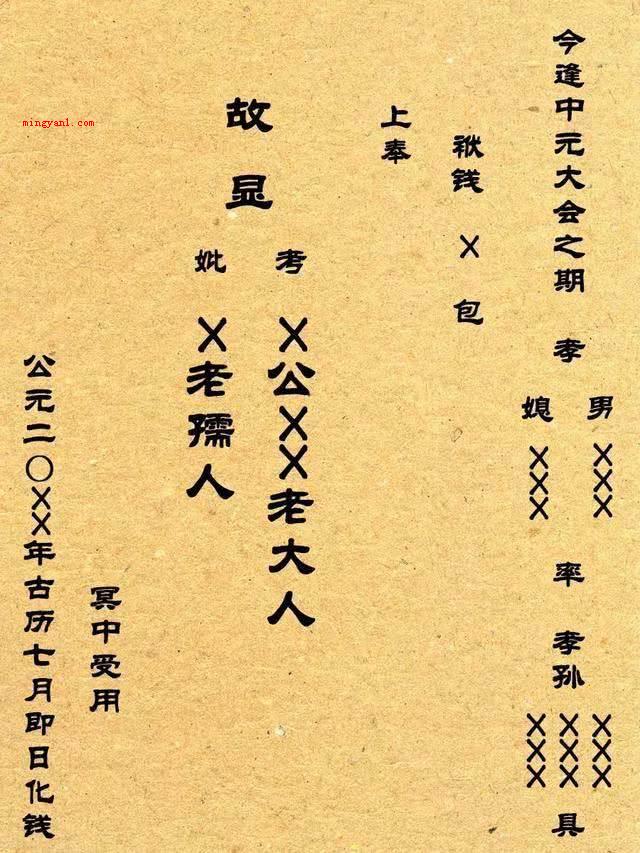 今逢中元大会之期 孝
男 XXX
媳 XXX
率 孝孙
XXX
XXX
XXX
具
袱钱 X 包
上奉
故显
考 X公XX老大人
妣 X老孺人
冥中受用
公元二〇XX年古历七月即日化钱
mingyan1.com